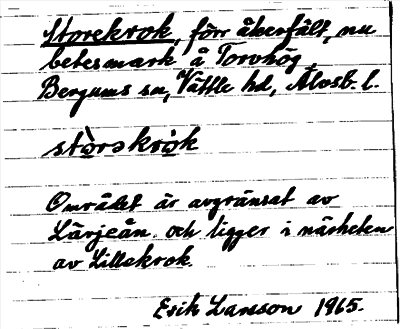 Storekrok, förr åkerfält, nu
betesmark å Torvhög,
Bergums sn, Vättle hd, Älvsb. l.
stòrəkrók
Området är avgränsat av
Lärjeån och ligger i närheten
av Lillekrok.
Erik Larsson 1965.